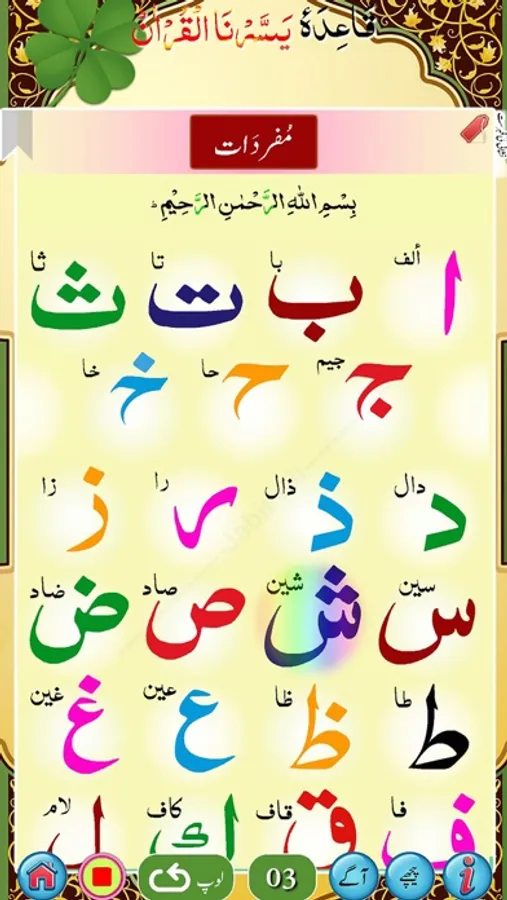 قَاعِدَهٔ يَسَّرْنَا الْقُرْآن
مُفردَات
بِسْمِ اللهِ الرَّحْمٰنِ الرَّحِيْمِ ط
ألف ا با ب تا ت ثا ث
جيم ج حا ح خا خ
دال د ذال ذ را ر زا ز
سين س شين ش صاد ص ضاد ض
طا ط ظا ظ عين ع غين غ
فا ف قاف ق کاف ک لام ل
پیچھے آگے 03 لوپ